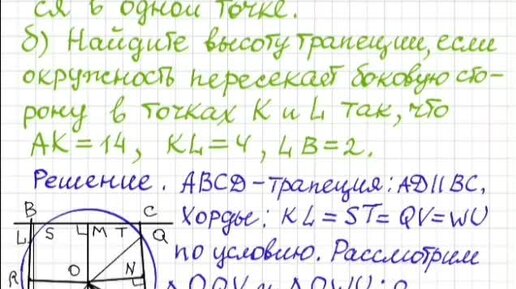 ся в одной точке.
б) Найдите высоту трапеции, если
окружность пересекает боковую сто-
рону в точках K и L так, что
AK=14, KL=4, LB=2.
Решение. ABCD-трапеция: AD||BC,
Хорды: KL=ST=QV=WU
по условию. Рассмотрим
B C
L S L M T Q
R O N